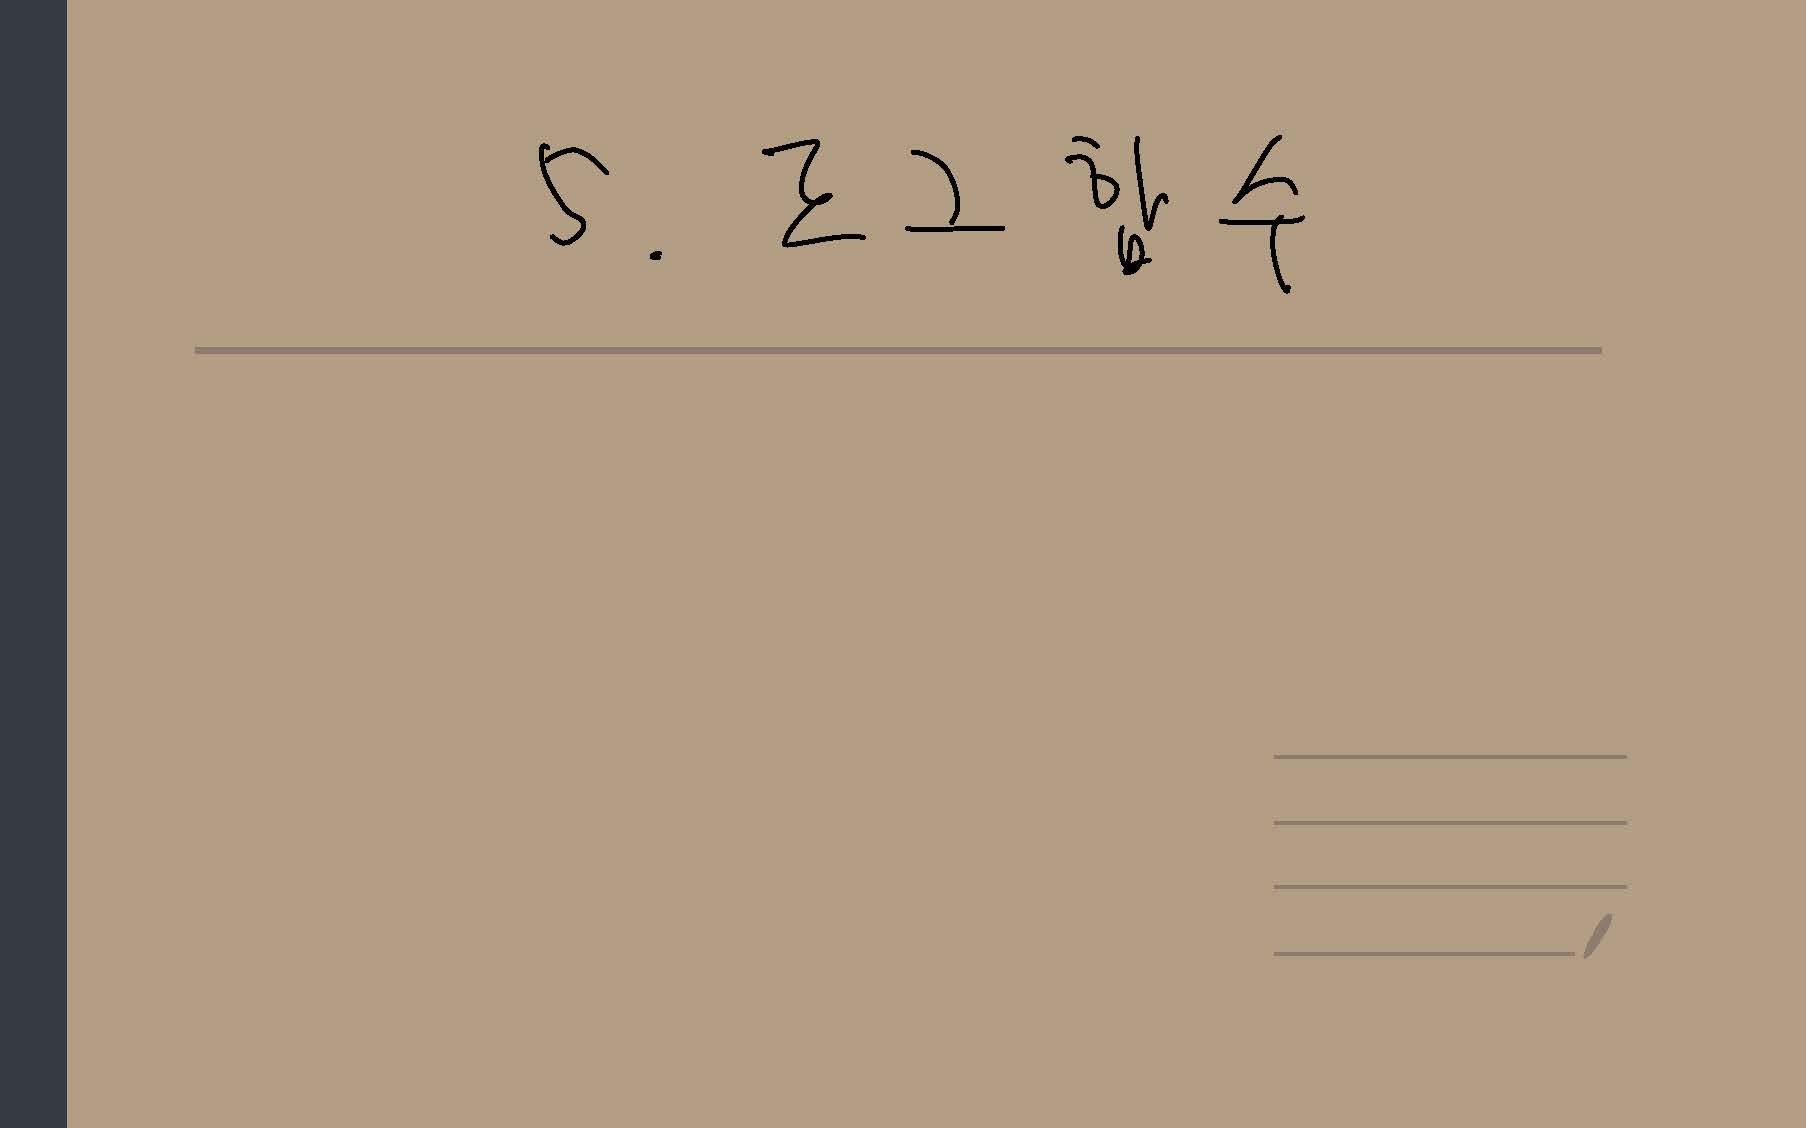 5. 로그함수